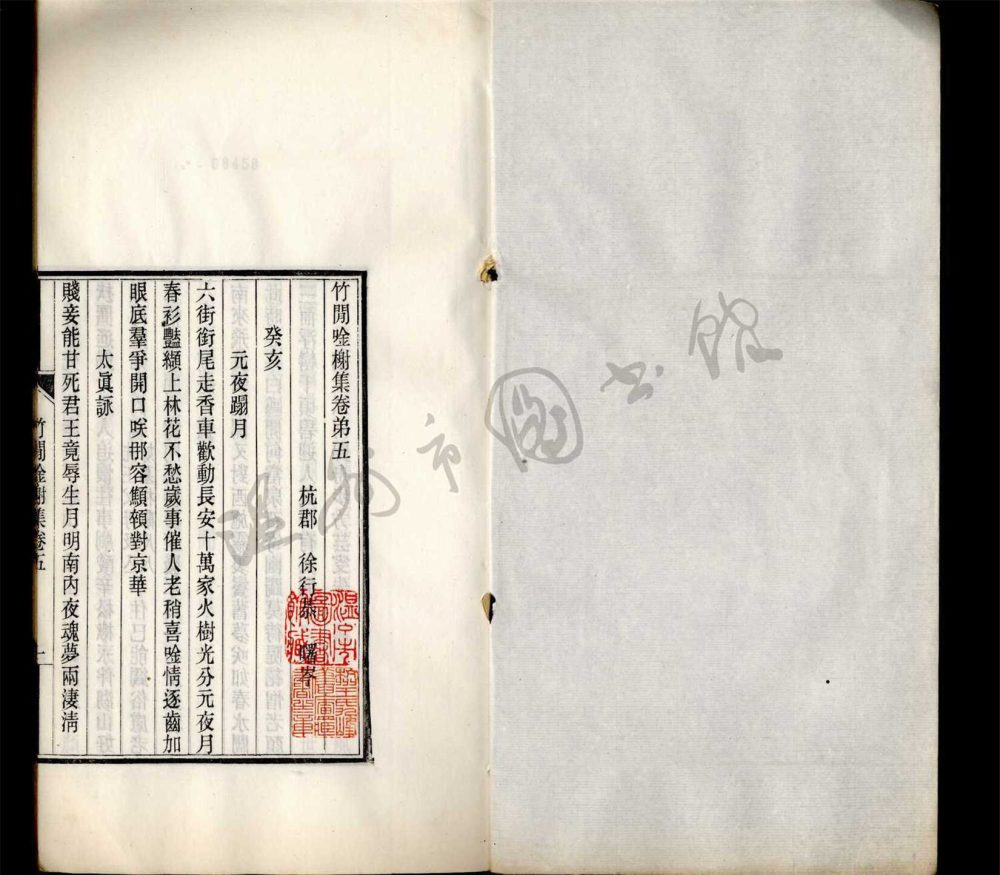 竹閒唫榭集卷弟五
杭郡 徐行恭 曙岑
癸亥
元夜蹋月
六街銜尾走香車歡動長安十萬家火樹光分元夜月
春衫豔纈上林花不愁歲事催人老稍喜唫情逐齒加
眼底羣爭開口咲那容顦頓對京華
太眞詠
賤妾能甘死君王竟辱生月明南內夜魂夢兩淒淸
竹閒唫榭集卷五
一
溫州市圖書館